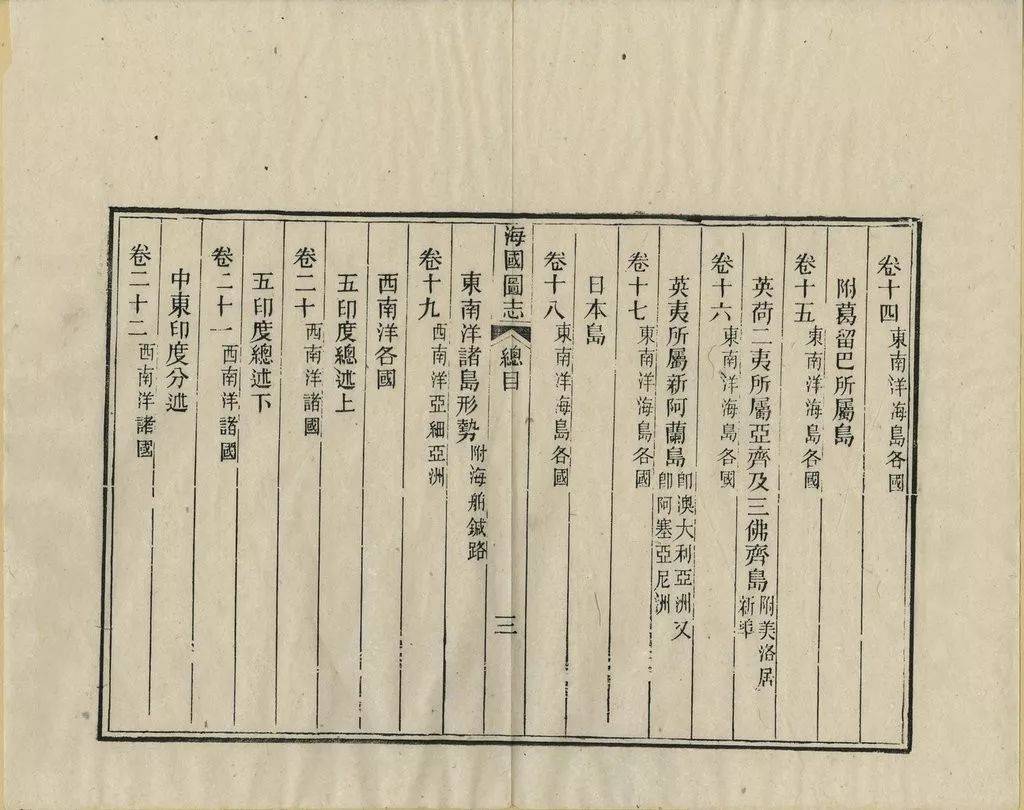 卷十四 東南洋海島各國
附葛留巴所屬島
卷十五 東南洋海島各國
英荷二夷所屬亞齊及三佛齊島 附美洛居
新
卷十六 東南洋海島各國
英夷所屬新阿蘭島 卽澳大利亞洲又
卽阿塞亞尼洲
卷十七 東南洋海島各國
日本島
卷十八 東南洋海島各國
海國圖志 總目 三
東南洋諸島形勢 附海舶鍼路
卷十九 西南洋亞細亞洲
西南洋各國
五印度總述上
卷二十 西南洋諸國
五印度總述下
卷二十一 西南洋諸國
中東印度分述
卷二十二 西南洋諸國